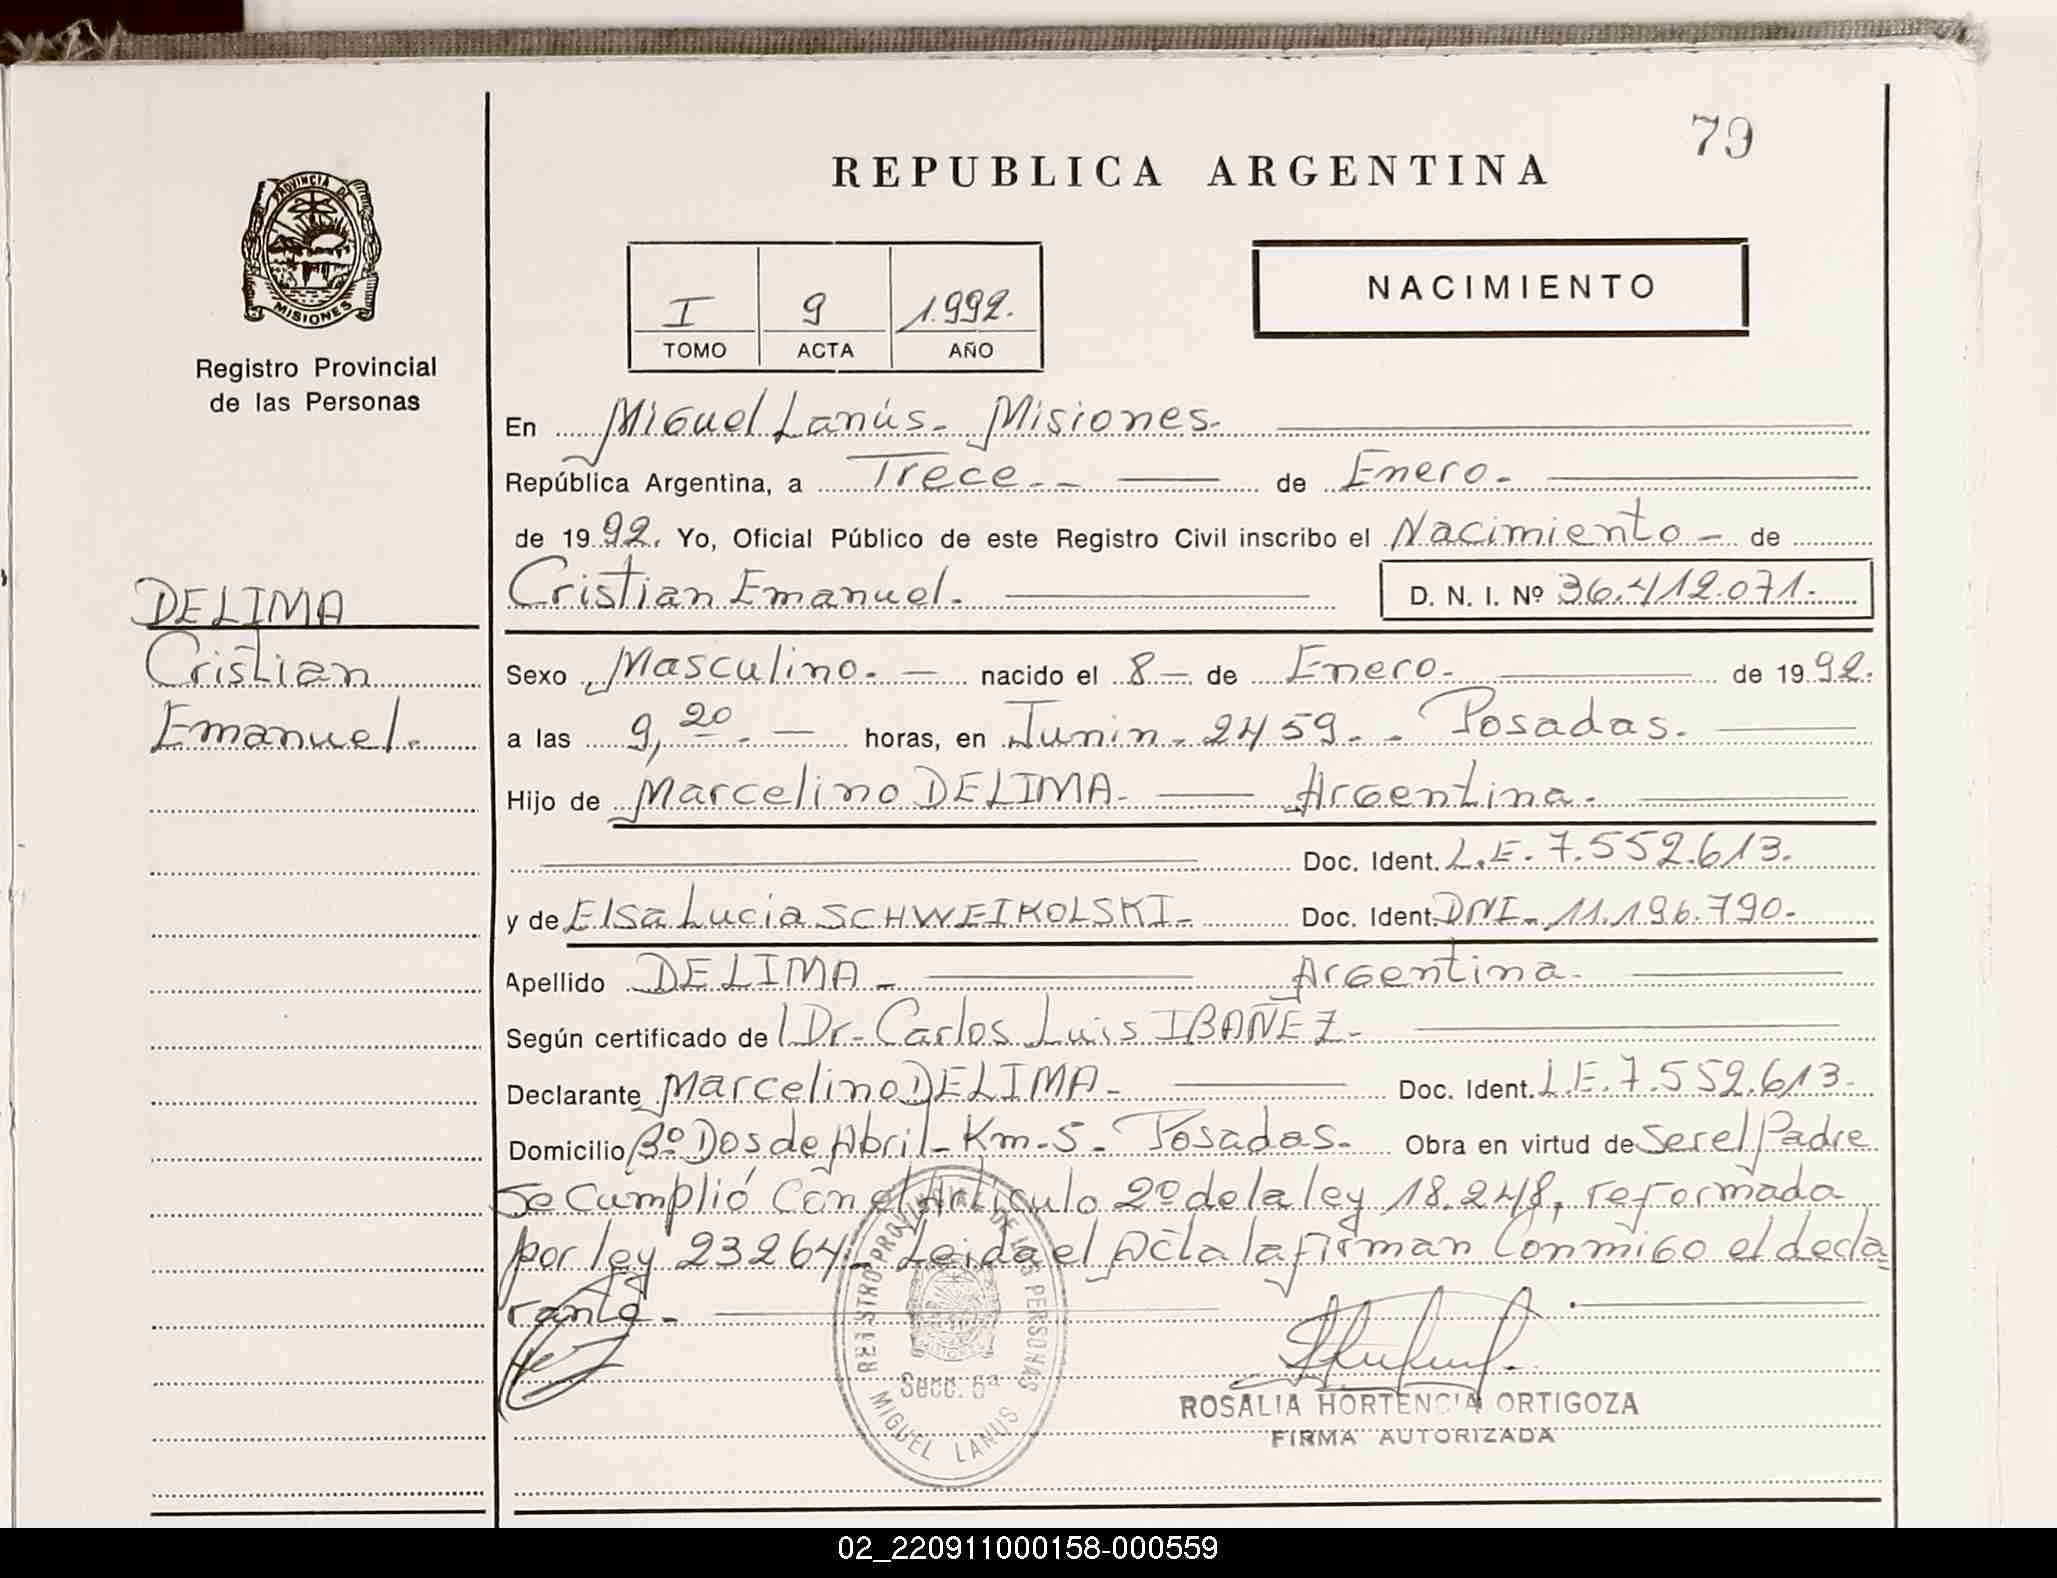 79
REPUBLICA ARGENTINA
PROVINCIA DE
MISIONES
Registro Provincial
de las Personas
I 9 1.992.
TOMO ACTA AÑO
NACIMIENTO
En Miguel Lanús. Misiones.
República Argentina, a Trece.- de Enero.
de 1992. Yo, Oficial Público de este Registro Civil inscribo el Nacimiento - de
Cristian Emanuel. D. N. I. Nº 36.412.071.
DELIMA
Cristian
Emanuel.
Sexo Masculino. nacido el 8 de Enero. de 1992.
a las 9,20. horas, en Junin. 2459. - Posadas.
Hijo de Marcelino DELIMA. Argentina.
Doc. Ident. L.E. 7.552.613.
y de Elsa Lucia SCHWEIKOLSKI. Doc. Ident. DNI. 11.196.790.
Apellido DELIMA. Argentina.
Según certificado de Dr. Carlos Luis IBAÑEZ.
Declarante Marcelino DELIMA. Doc. Ident. L.E. 7.552.613.
Domicilio Bº Dos de Abril - Km. 5. Posadas. Obra en virtud de Ser el Padre
Se Cumplió Con el Articulo 2º de la ley 18.248, reformada
por ley 23264. Leida el Acta la firman Conmigo el decla=
rante.
REGISTRO PROVINCIAL DE LAS PERSONAS
Secc. 6ª
MIGUEL LANUS
ROSALIA HORTENCIA ORTIGOZA
FIRMA AUTORIZADA
02_220911000158-000559